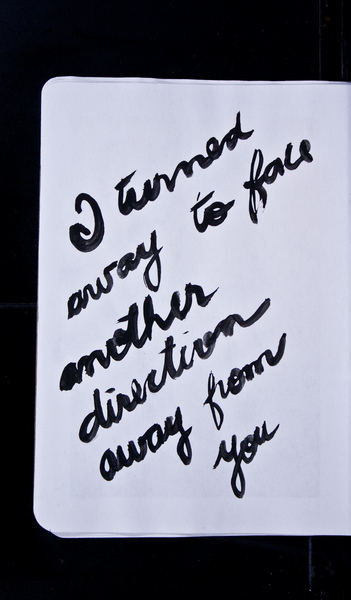 I turned
away to face
another
direction
away from
you